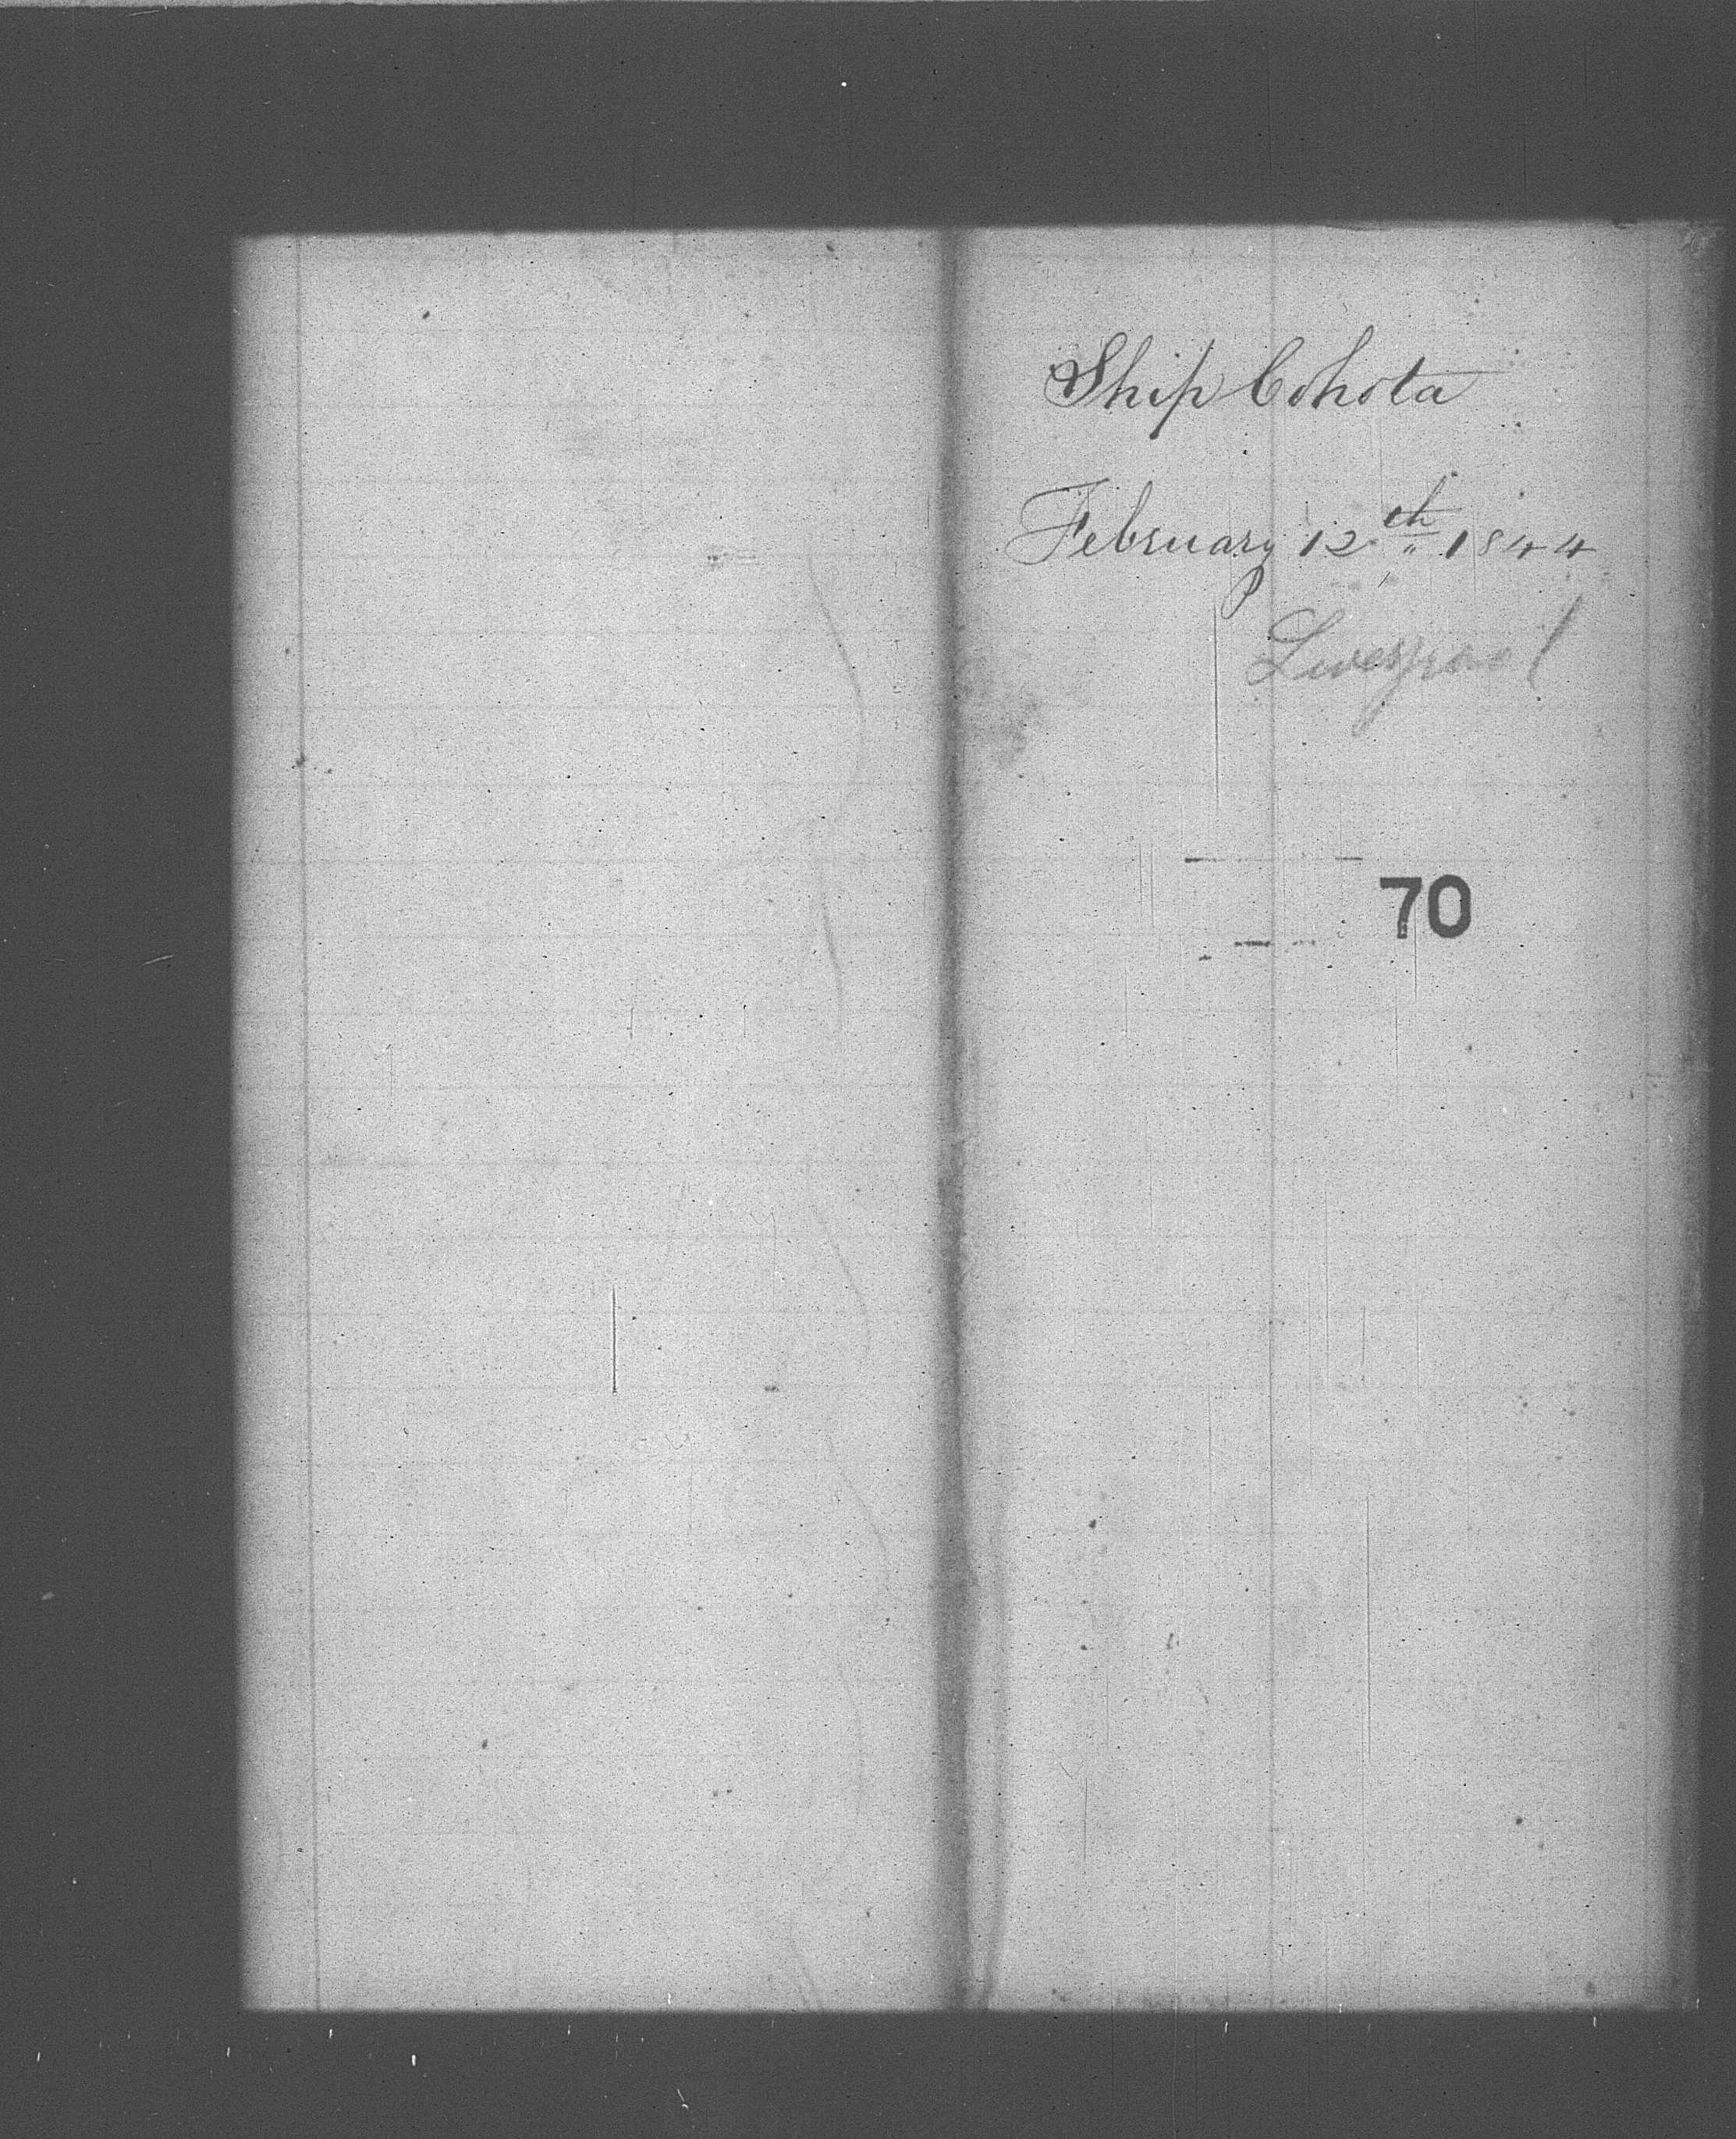 Ship Cohota
February 12th 1844
Liverpool
70